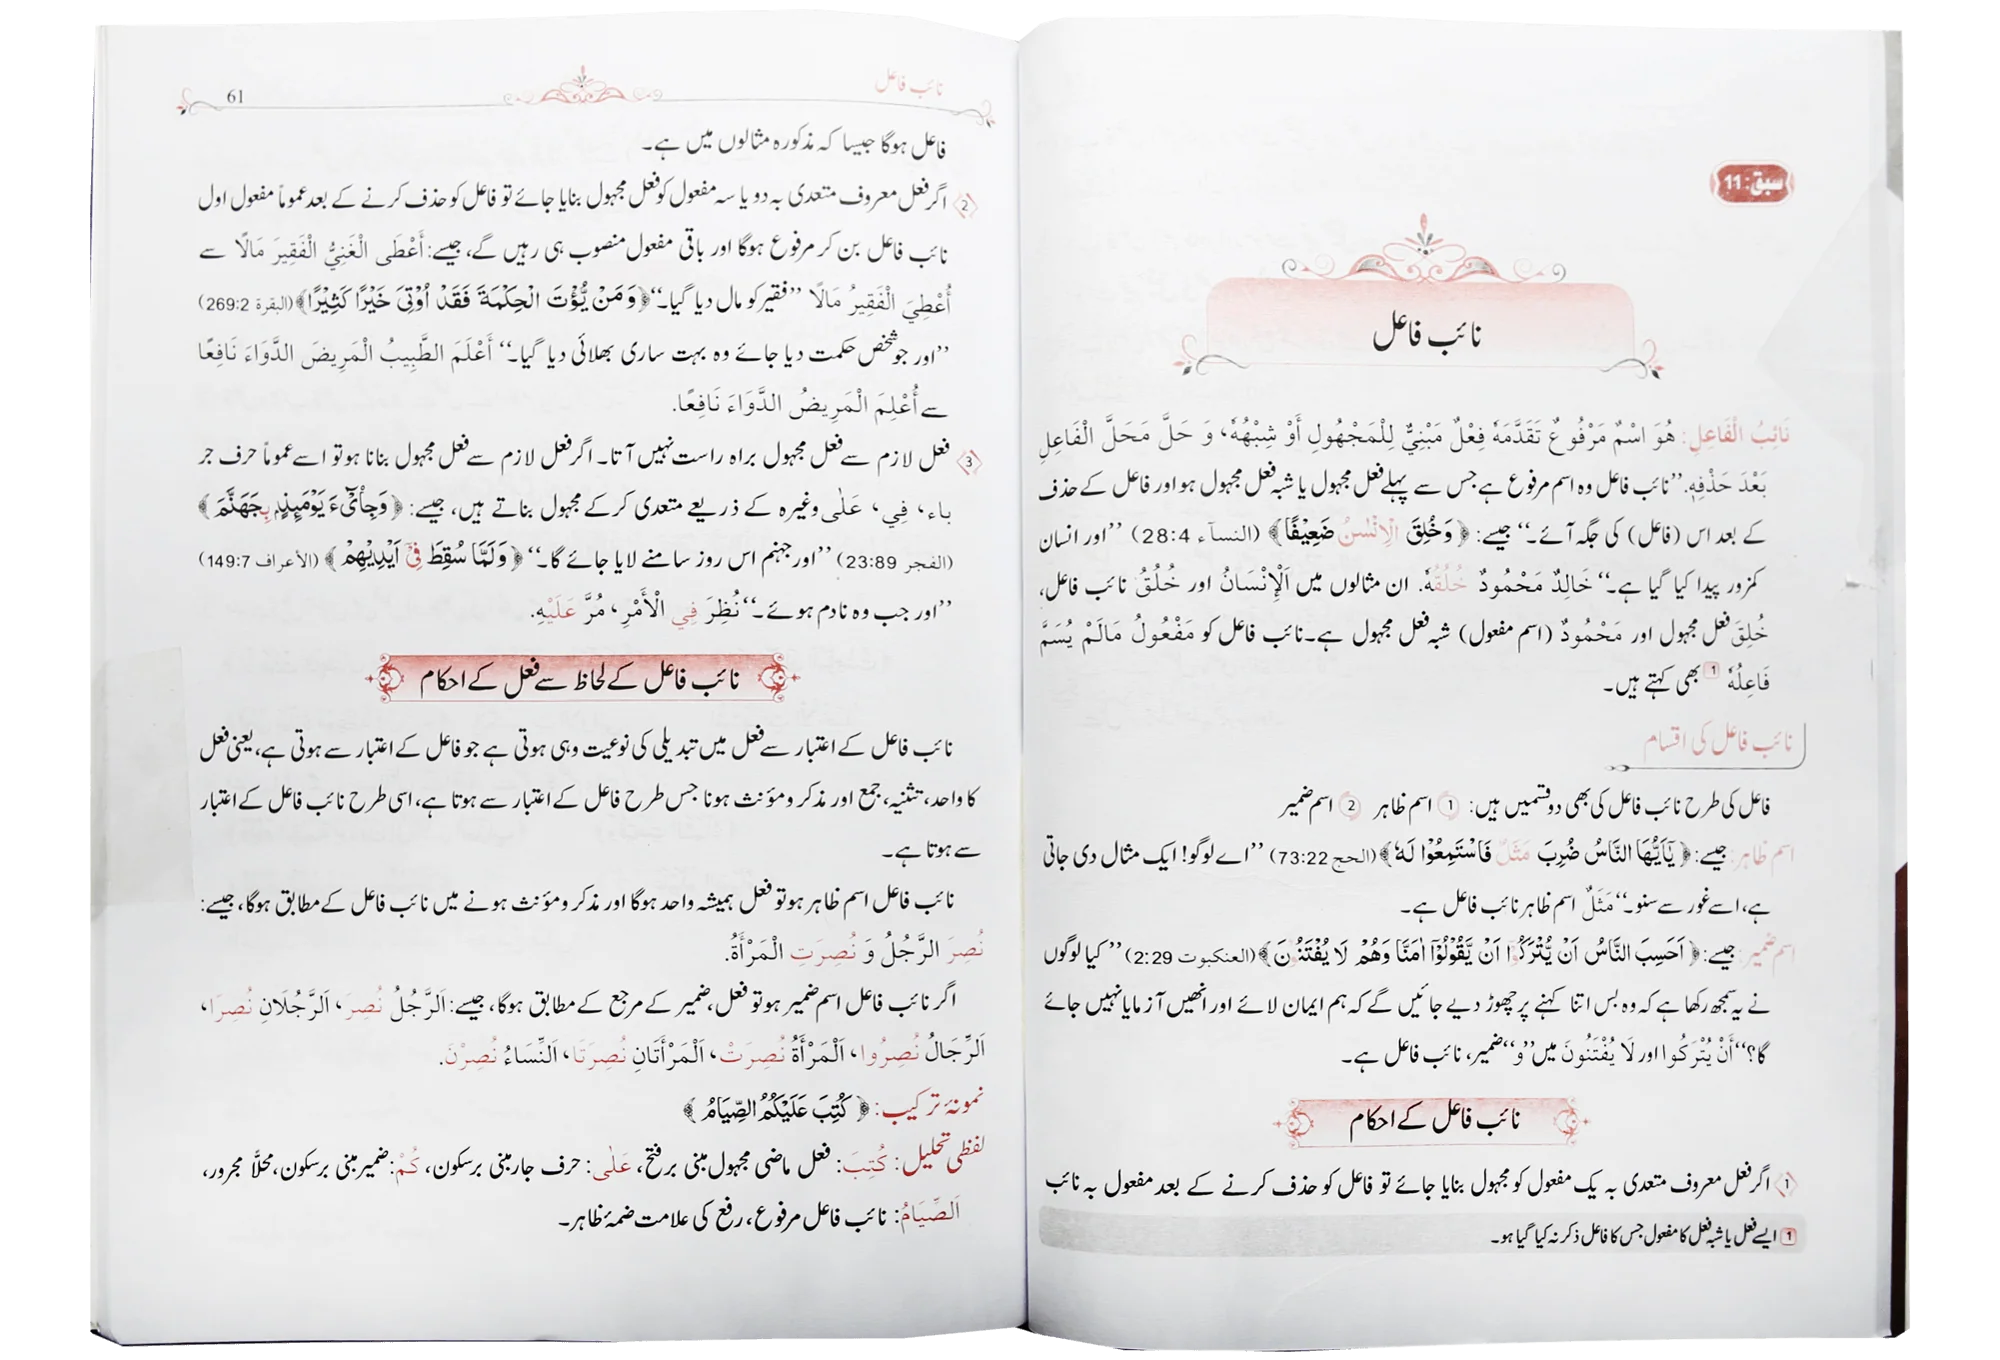 سبق: 11
نائب فاعل
نَائِبُ الْفَاعِلِ: هُوَ اسْمٌ مَرْفُوعٌ تَقَدَّمَهٗ فِعْلٌ مَبْنِيٌّ لِلْمَجْهُولِ أَوْ شِبْهُهٗ، وَ حَلَّ مَحَلَّ الْفَاعِلِ
بَعْدَ حَذْفِهٖ. ’’نائب فاعل وہ اسم مرفوع ہے جس سے پہلے فعل مجہول یا شبہ فعل مجہول ہو اور فاعل کے حذف
کے بعد اس (فاعل) کی جگہ آئے۔‘‘ جیسے: ﴿وَخُلِقَ الْاِنْسٰنُ ضَعِيْفًا﴾ (النسآء 28:4) ’’اور انسان
کمزور پیدا کیا گیا ہے۔‘‘ خَالِدٌ مَحْمُودٌ خُلُقُهٗ. ان مثالوں میں اَلْإِنْسَانُ اور خُلُقُ نائب فاعل،
خُلِقَ فعل مجہول اور مَحْمُودٌ (اسم مفعول) شبہ فعل مجہول ہے۔ نائب فاعل کو مَفْعُولُ مَالَمْ يُسَمَّ
فَاعِلُهٗ 1 بھی کہتے ہیں۔
نائب فاعل کی اقسام
فاعل کی طرح نائب فاعل کی بھی دو قسمیں ہیں: 1 اسم ظاہر 2 اسم ضمیر
اسم ظاہر: جیسے: ﴿يٰٓاَيُّهَا النَّاسُ ضُرِبَ مَثَلٌ فَاسْتَمِعُوْا لَهٗ﴾ (الحج 73:22) ’’اے لوگو! ایک مثال دی جاتی
ہے، اسے غور سے سنو۔‘‘ مَثَلٌ اسم ظاہر نائب فاعل ہے۔
اسم ضمیر: جیسے: ﴿اَحَسِبَ النَّاسُ اَنْ يُّتْرَكُوْٓا اَنْ يَّقُوْلُوْٓا اٰمَنَّا وَهُمْ لَا يُفْتَنُوْنَ﴾ (العنكبوت 2:29) ’’کیا لوگوں
نے یہ سمجھ رکھا ہے کہ وہ بس اتنا کہنے پر چھوڑ دیے جائیں گے کہ ہم ایمان لائے اور انھیں آزمایا نہیں جائے
گا؟‘‘ أَنْ يُتْرَكُوا اور لَا يُفْتَنُونَ میں ’’و‘‘ ضمیر، نائب فاعل ہے۔
نائب فاعل کے احکام
1 اگر فعل معروف متعدی بہ یک مفعول کو مجہول بنایا جائے تو فاعل کو حذف کرنے کے بعد مفعول بہ نائب
1 ایسے فعل یا شبہ فعل کا مفعول جس کا فاعل ذکر نہ کیا گیا ہو۔
نائب فاعل 61
فاعل ہوگا جیسا کہ مذکورہ مثالوں میں ہے۔
2 اگر فعل معروف متعدی بہ دو یا سہ مفعول کو فعل مجہول بنایا جائے تو فاعل کو حذف کرنے کے بعد عموماً مفعول اول
نائب فاعل بن کر مرفوع ہوگا اور باقی مفعول منصوب ہی رہیں گے، جیسے: أَعْطَى الْغَنِيُّ الْفَقِيرَ مَالًا سے
أُعْطِيَ الْفَقِيرُ مَالًا ’’فقیر کو مال دیا گیا۔‘‘ ﴿وَمَنْ يُّؤْتَ الْحِكْمَةَ فَقَدْ اُوْتِيَ خَيْرًا كَثِيْرًا﴾ (البقرة 269:2)
’’اور جو شخص حکمت دیا جائے وہ بہت ساری بھلائی دیا گیا۔‘‘ أَعْلَمَ الطَّبِيبُ الْمَرِيضَ الدَّوَاءَ نَافِعًا
سے أُعْلِمَ الْمَرِيضُ الدَّوَاءَ نَافِعًا.
3 فعل لازم سے فعل مجہول براہ راست نہیں آتا۔ اگر فعل لازم سے فعل مجہول بنانا ہو تو اسے عموماً حرف جر
باء، فِي، عَلٰى وغیرہ کے ذریعے متعدی کرکے مجہول بناتے ہیں، جیسے: ﴿وَجِایْٓءَ يَوْمَىِٕذٍۭ بِجَهَنَّمَ﴾
(الفجر 23:89) ’’اور جہنم اس روز سامنے لایا جائے گا۔‘‘ ﴿وَلَمَّا سُقِطَ فِيْٓ اَيْدِيْهِمْ﴾ (الأعراف 149:7)
’’اور جب وہ نادم ہوئے۔‘‘ نُظِرَ فِي الْأَمْرِ، مُرَّ عَلَيْهِ.
نائب فاعل کے لحاظ سے فعل کے احکام
نائب فاعل کے اعتبار سے فعل میں تبدیلی کی نوعیت وہی ہوتی ہے جو فاعل کے اعتبار سے ہوتی ہے، یعنی فعل
کا واحد، تثنیہ، جمع اور مذکر و مؤنث ہونا جس طرح فاعل کے اعتبار سے ہوتا ہے، اسی طرح نائب فاعل کے اعتبار
سے ہوتا ہے۔
نائب فاعل اسم ظاہر ہو تو فعل ہمیشہ واحد ہوگا اور مذکر و مؤنث ہونے میں نائب فاعل کے مطابق ہوگا، جیسے:
نُصِرَ الرَّجُلُ وَ نُصِرَتِ الْمَرْأَةُ.
اگر نائب فاعل اسم ضمیر ہو تو فعل، ضمیر کے مرجع کے مطابق ہوگا، جیسے: اَلرَّجُلُ نُصِرَ، اَلرَّجُلَانِ نُصِرَا،
اَلرِّجَالُ نُصِرُوا، اَلْمَرْأَةُ نُصِرَتْ، اَلْمَرْأَتَانِ نُصِرَتَا، اَلنِّسَاءُ نُصِرْنَ.
نمونۂ ترکیب: ﴿كُتِبَ عَلَيْكُمُ الصِّيَامُ﴾
لفظی تحلیل: كُتِبَ: فعل ماضی مجہول مبنی بر فتح، عَلٰى: حرف جار مبنی بر سکون، كُمْ: ضمیر مبنی بر سکون، محلاً مجرور،
اَلصِّيَامُ: نائب فاعل مرفوع، رفع کی علامت ضمۂ ظاہر۔